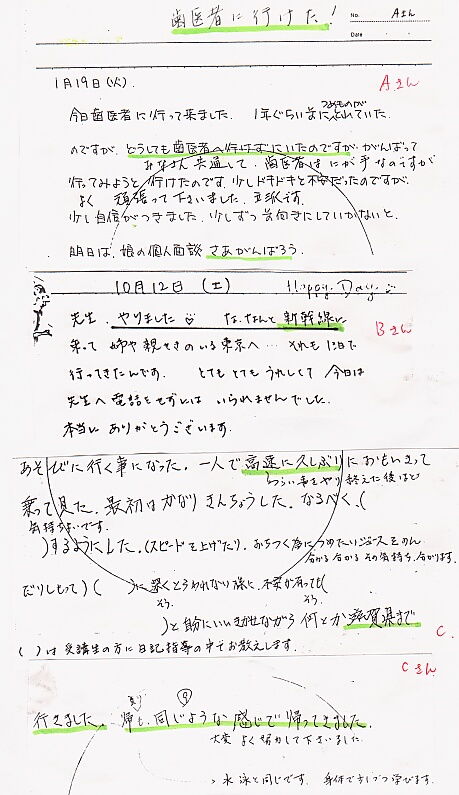 歯医者に行けた!
No. Aさん
Date
1月19日(火).
Aさん
今日歯医者に行って来ました. 1年ぐらい前につめものがとれていた.
のですが, どうしても歯医者へ行けずにいたのですが, がんばって
みなさん共通して, 歯医者はにが手なのですが
行ってみようと行けたのです. 少しドキドキと不安だったのですが,
よく頑張って下さいました. 立派です.
少し自信がつきました. 少しずつ前向きにしていかないと.
明日は, 娘の個人面談 さあがんばろう.
10月12日 (土) Happy Day
先生. やりました な, なんと新幹線に
Bさん
乗って 姉や親せきのいる東京へ… それも1日で
行ってきたんです. とてもとてもうれしくて 今日は
先生へ電話をせずには いられませんでした.
本当に ありがとうございます.
あそびに行く事になった. 一人で高速に久しぶりにおもいきって
つらい事をやり終えた後ほど
乗って見た. 最初はかなりきんちょうした. なるべく, (
気持ちよいです.
)するようにした. (スピードを上げたり, おちつく為につめたいジュースをのん
分かる分かるその気持ち, 分かります.
だりしもって) ( )に深くとらわれない様に 不安が有っても(
そう. そう.
)と自分にいいきかせながら 何とか滋賀県まで
C.
( )は受講生の方に日記指導の中でお教えします.
Cさん
行きました. 帰も, 同じような感じで帰ってきました.
大変 よく努力して下さいました.
水泳と同じです. 身体で少しづつ学びます.